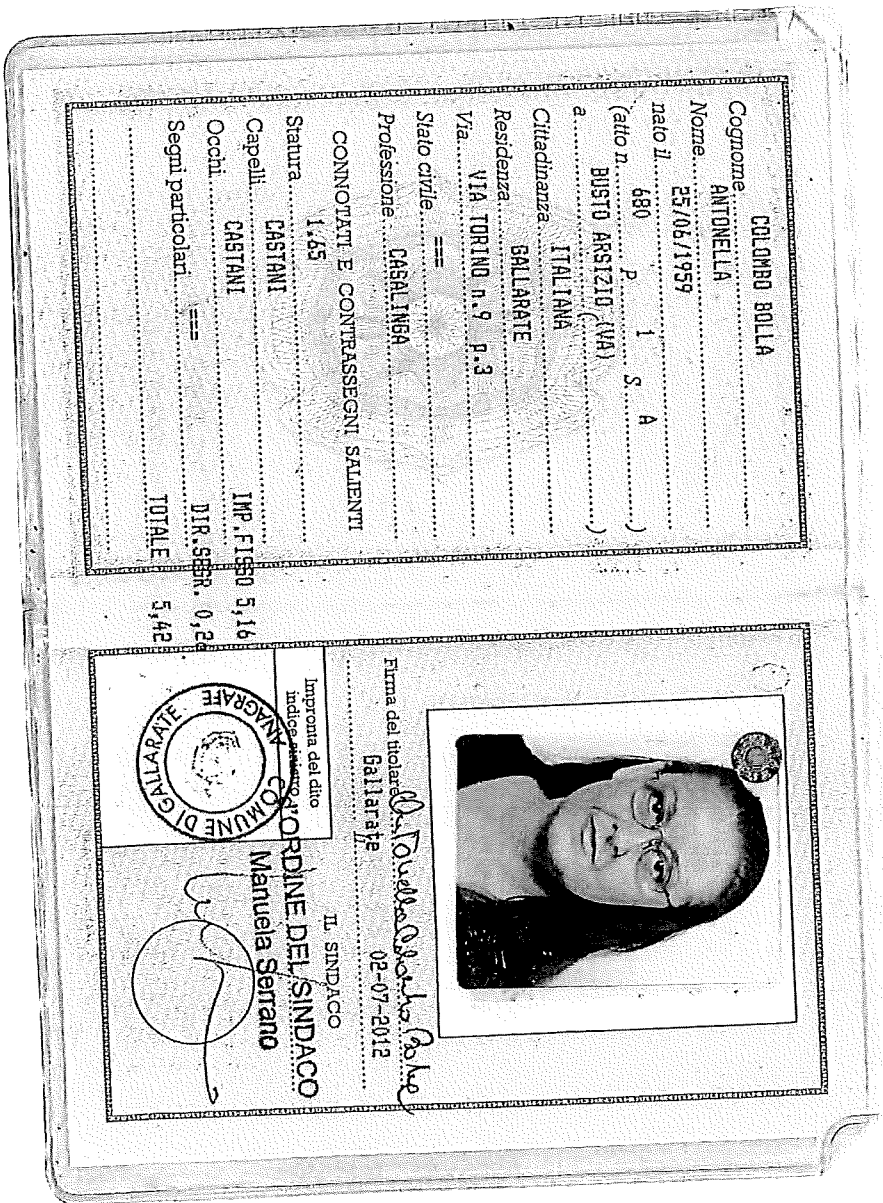 Cognome COLOMBO BOLLA
Nome ANTONELLA
nato il 25/06/1959
(atto n. 680 P 1 S A )
a BUSTO ARSIZIO (VA) ( )
Cittadinanza ITALIANA
Residenza GALLARATE
Via VIA TORINO n.9 p.3
Stato civile ===
Professione CASALINGA
CONNOTATI E CONTRASSEGNI SALIENTI
Statura 1,65
Capelli CASTANI
Occhi CASTANI
Segni particolari ===
IMP.FISSO 5,16
DIR.SEGR. 0,26
TOTALE 5,42
Firma del titolare Antonella Colombo Bolla
Gallarate lì 02-07-2012
IL SINDACO
D'ORDINE DEL SINDACO
Manuela Serrano
Impronta del dito
indice sinistro
COMUNE DI GALLARATE
ANAGRAFE